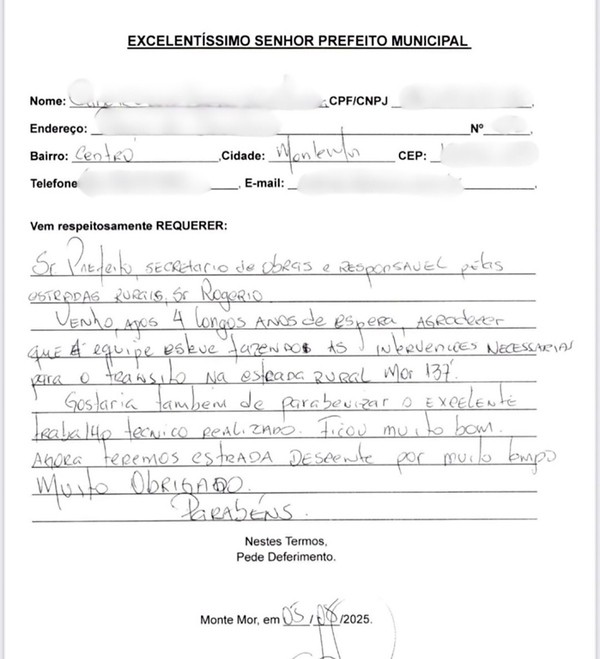 EXCELENTÍSSIMO SENHOR PREFEITO MUNICIPAL
Nome: ,CPF/CNPJ
Endereço: Nº
Bairro: Centro ,Cidade: CEP:
Telefone , E-mail:
Vem respeitosamente REQUERER:
Sr Prefeito, SECRETARIO de OBRAS e RESPONSAVEL pelas
ESTRADAS RURAIS, Sr ROGERIO
VENHO, APOS 4 longos ANOS de ESPERA, AGRADECER
QUE A equipe esteve fazendo AS INTERVENCÕES NECESSARIAS
para o TRANSITO NA estrada RURAL Mor 137.
Gostaria tambem de parabenizar o EXCELENTE
trabalho tecnico REALIZADO. Ficou muito bom.
AGORA teremos ESTRADA DESCENTE por muito tempo
MUITO OBRIGADO.
PARABÉNS.
Nestes Termos,
Pede Deferimento.
Monte Mor, em 05/08/2025.